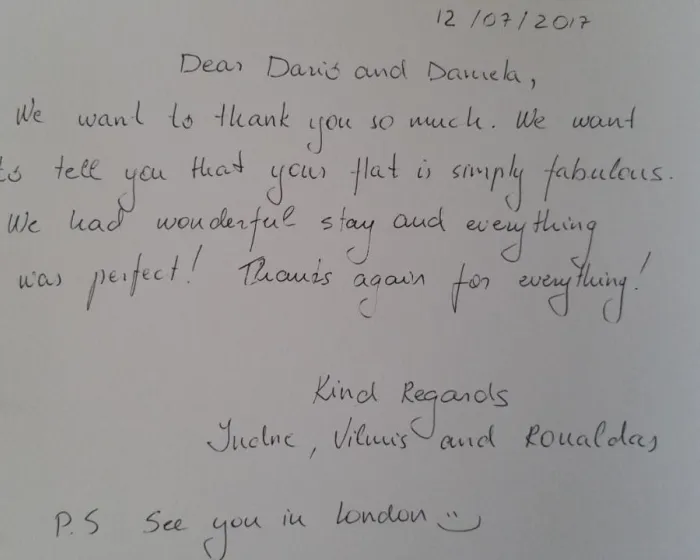 12/07/2017
Dear Dario and Daniela,
We want to thank you so much. We want
to tell you that your flat is simply fabulous.
We had wonderful stay and everything
was perfect! Thanks again for everything!
Kind Regards
, and
P.S See you in London :)